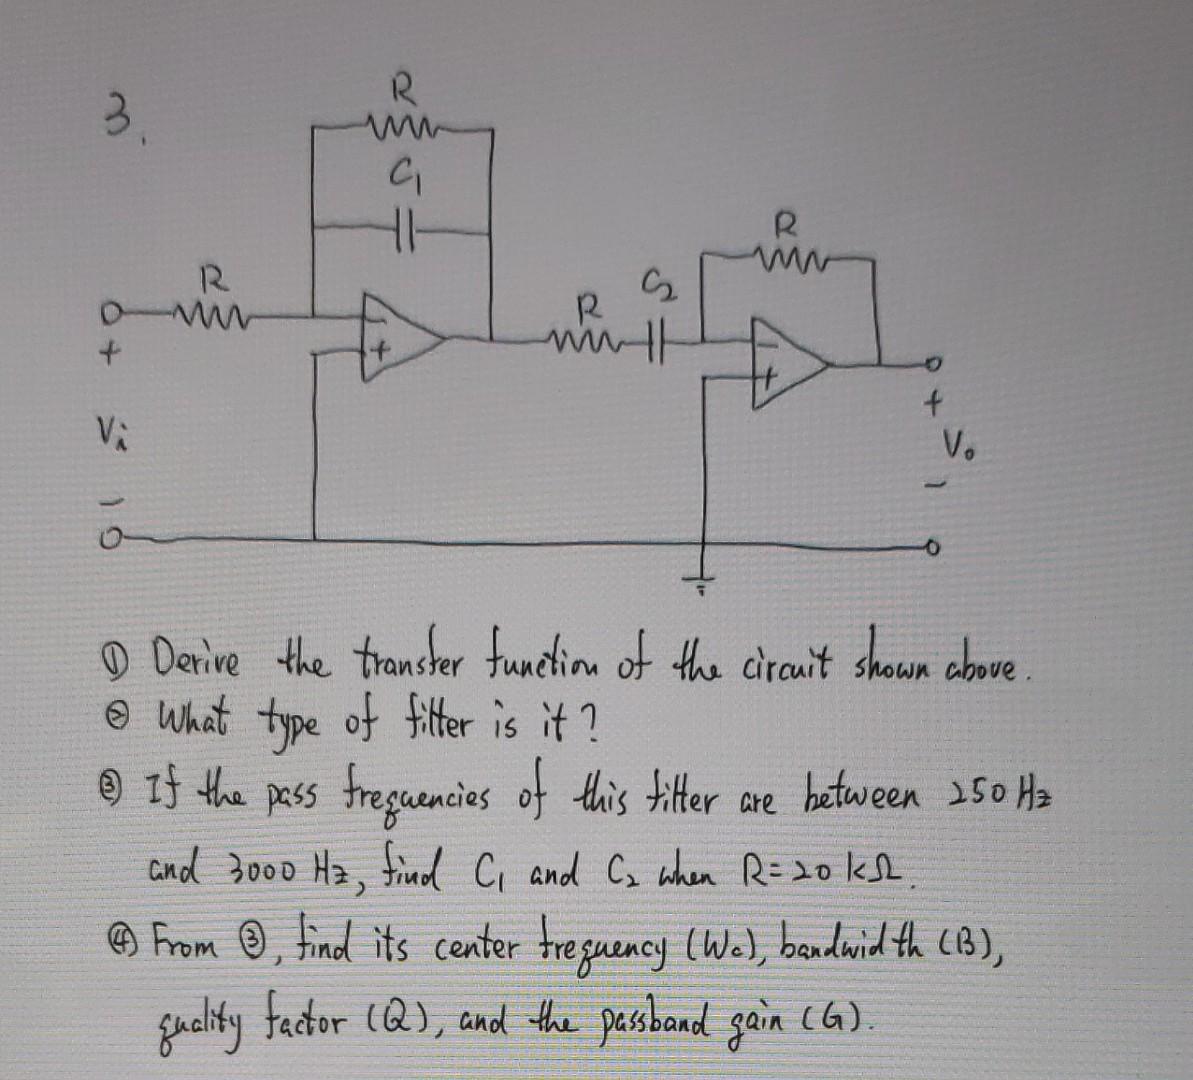 3.
R
C₁
R
R
C₂
R
−
+
−
+
+
Vi
−
+
Vo
−
① Derive the transfer function of the circuit shown above.
② What type of filter is it?
③ If the pass frequencies of this filter are between 250 Hz
and 3000 Hz, find C₁ and C₂ when R=20 kΩ.
④ From ③, find its center frequency (Wc), bandwidth (B),
quality factor (Q), and the passband gain (G).